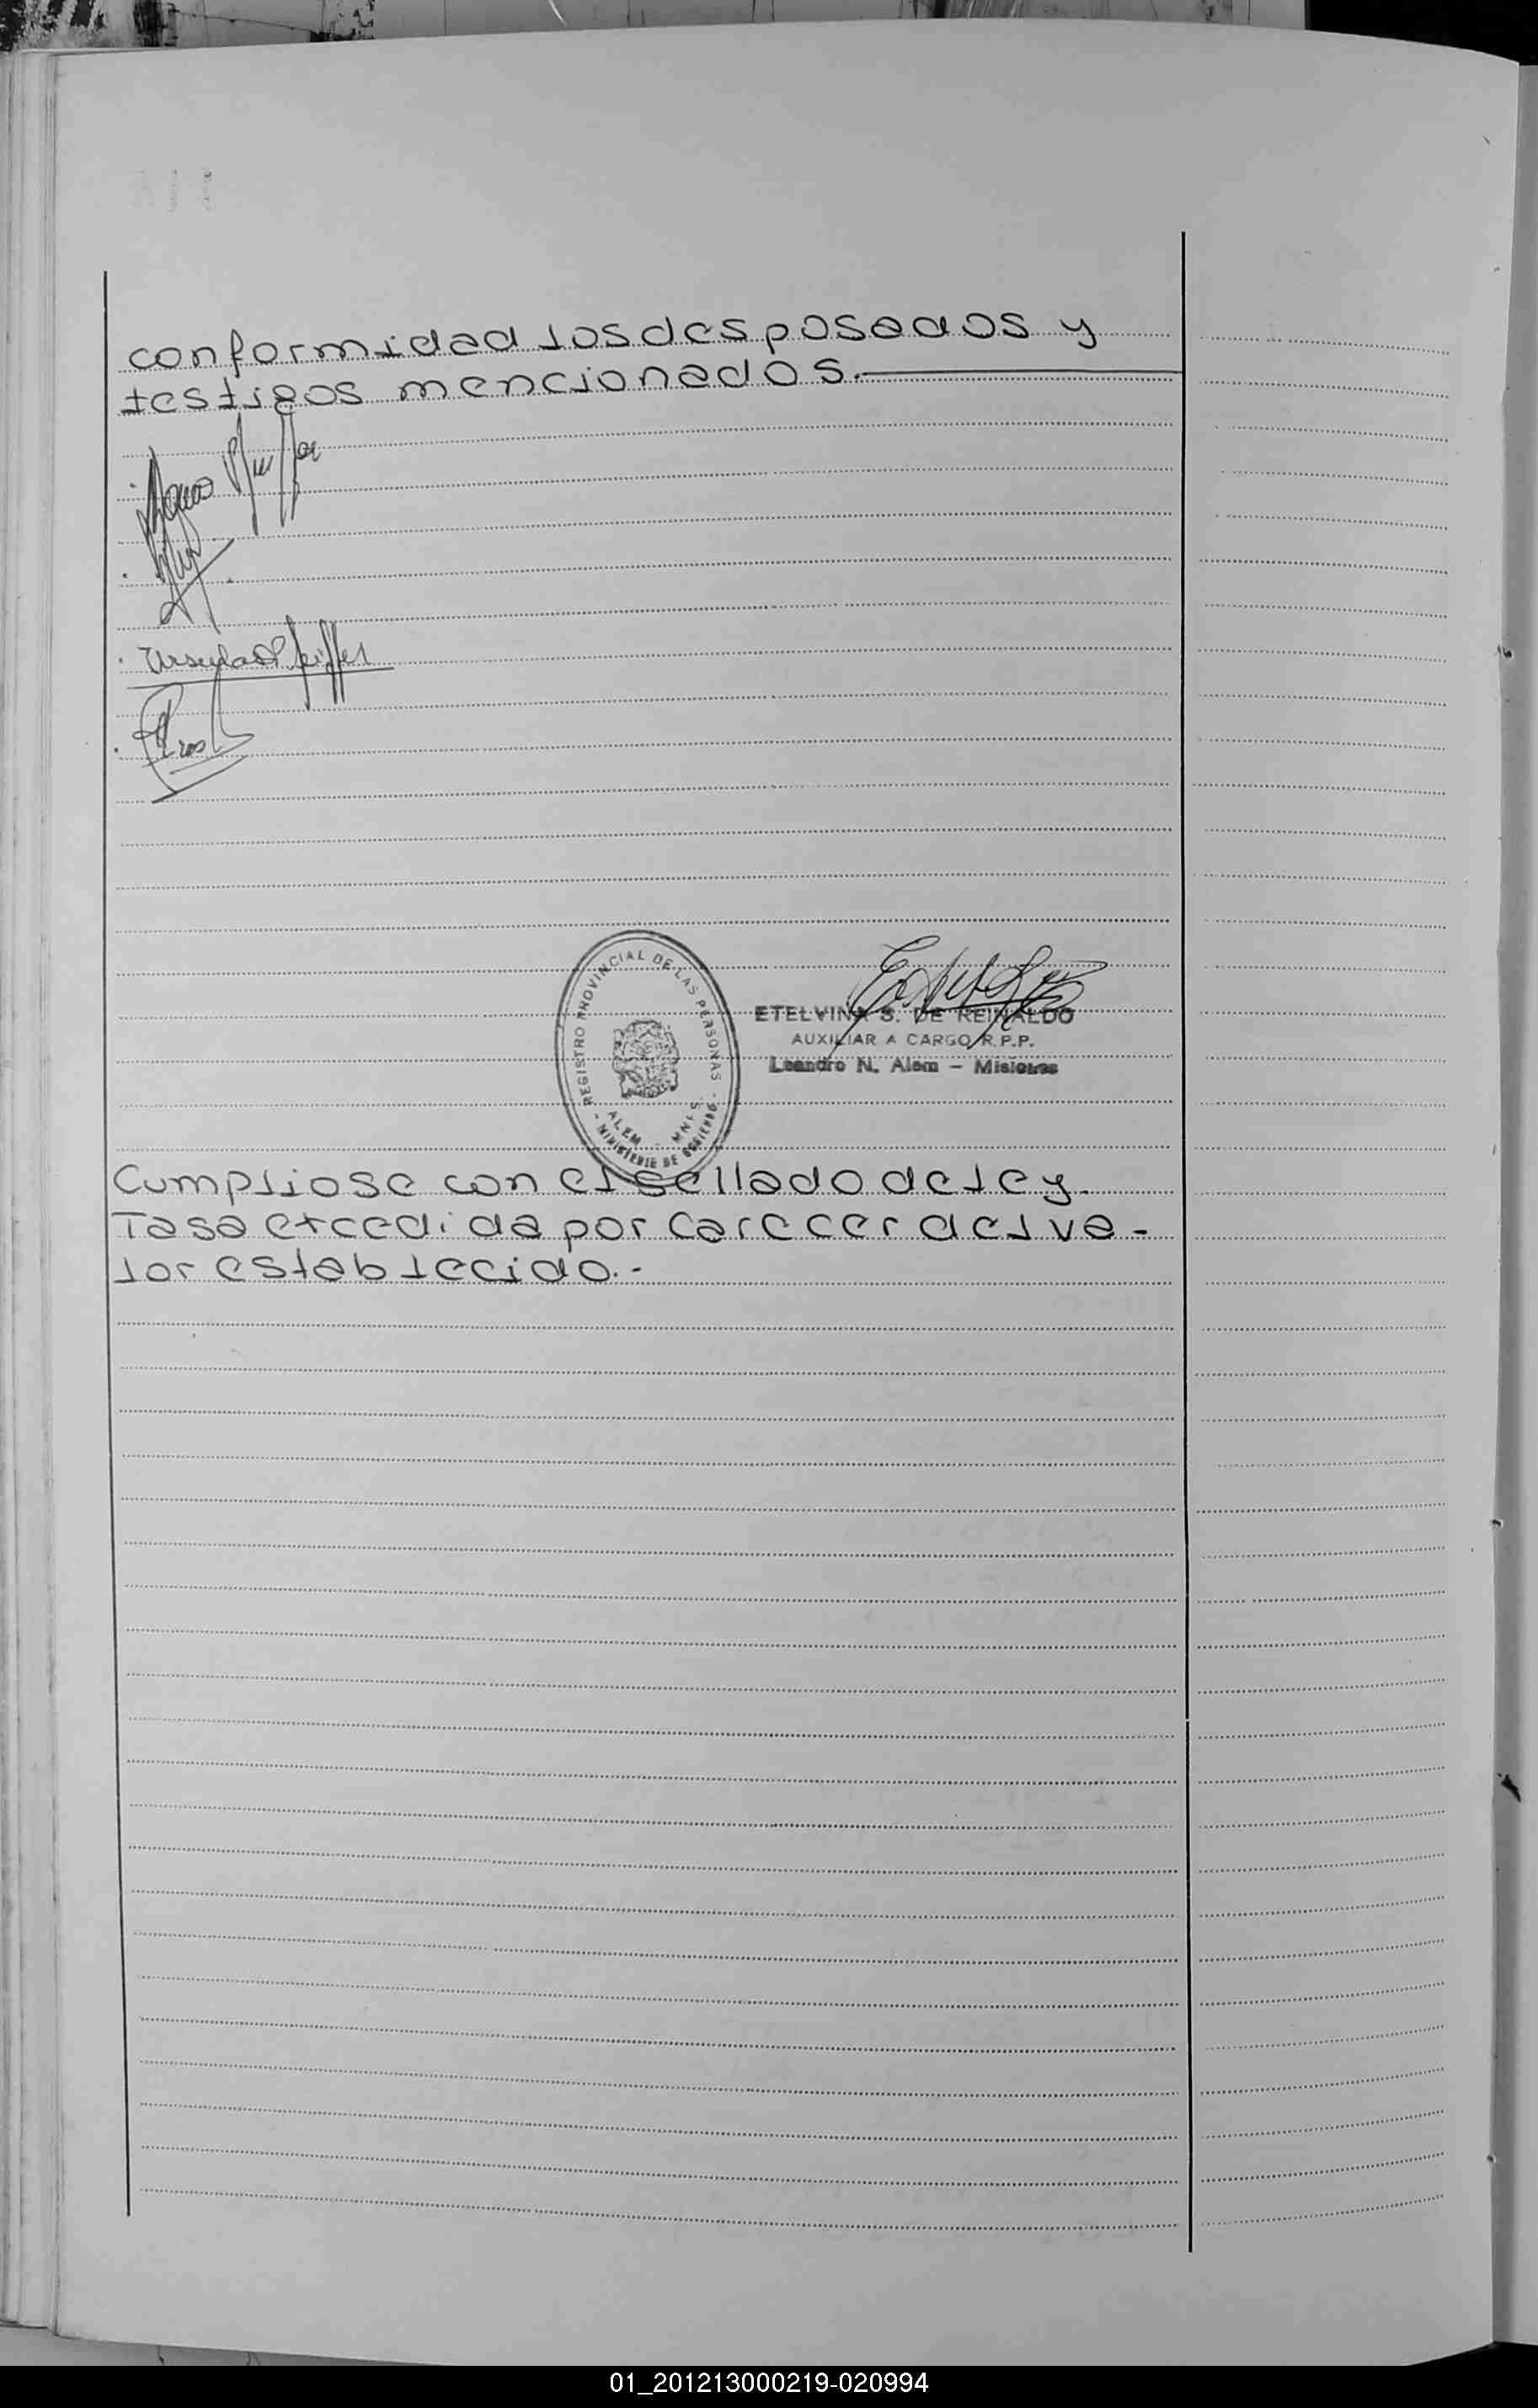 conformidad los desposados y
testigos mencionados.
Ursula Pfeiffer
REGISTRO PROVINCIAL DE LAS PERSONAS
ALEM - MNES.
- MINISTERIO DE GOBIERNO -
ETELVINA S. DE REINALDO
AUXILIAR A CARGO R.P.P.
Leandro N. Alem - Misiones
Cumpliose con el sellado de ley.
Tasa excedida por carecer del va-
lor establecido.-
01_201213000219-020994